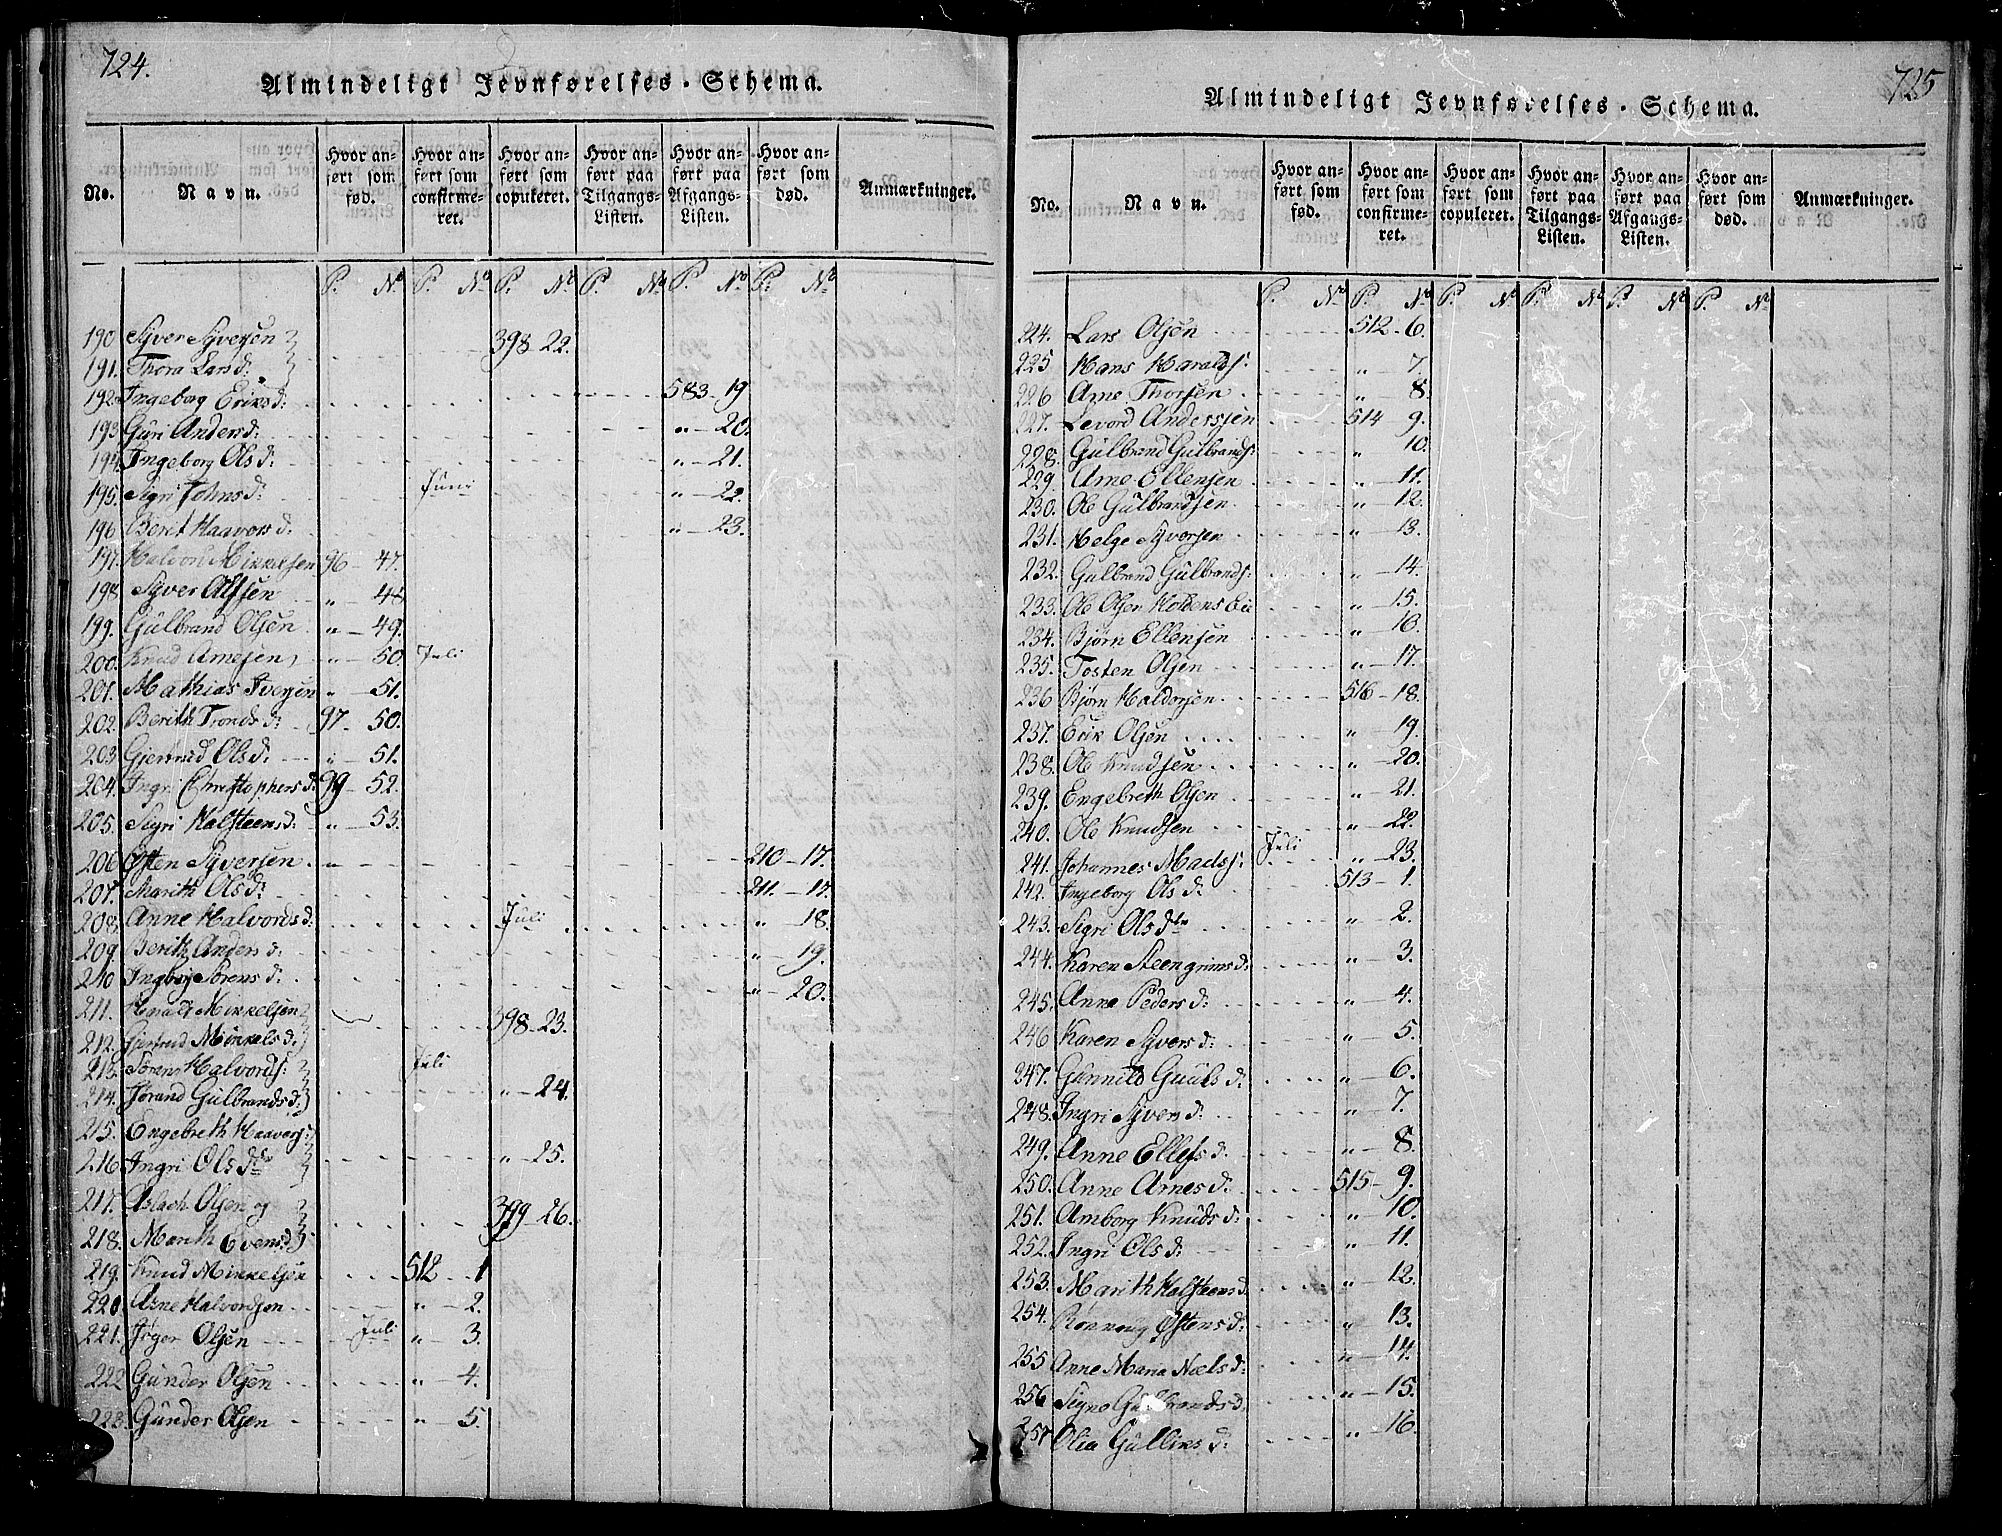 724.
Almindeligt Jevnførelses-Schema.
No. Navn. Hvor anført som fød. Hvor anført som confirmeret. Hvor anført som copuleret. Hvor anført paa Tilgangs-Listen. Hvor anført paa Afgangs-Listen. Hvor anført som død. Anmærkninger.
P. No P. No P. No P. No P. No P. No
190 Syver Syversen
191. Thora Larsd: 398 22.
192. Ingeborg Eriksd: 583 - 19
193 Guri Andersd: " - 20.
194 Ingeborg Olsd: " - 21.
195. Sigri Johnsd: Juni " - 22.
196 Berit Haavorsd: " - 23.
197. Halvor Mikkelsen 96 - 47.
198 Syver Alfsen " - 48
199. Gulbrand Olsen " - 49.
200. Knud Arnesen " - 50 Juli
201. Mathias Iversen " - 51.
202. Berith Tronds d: 97 - 50.
203 Gjertrud Olsd: " - 51.
204. Ingri Christophersd: 99 - 52.
205. Sigri Halsteensd: " - 53.
206 Østen Syversen 210 - 17.
207. Marith Olsd: 211. - 17.
208. Anne Halvordsd: Juli " 18.
209. Berith Anders d: " - 19.
210 Ingborg Sørens d: " - 20.
211. Mikkelsen
212. Giertrud Mikkelsd: 398 - 23.
213. Søren Halvords: Juli
214. Jørand Gulbrandsd: " - 24.
215. Engebreth Haavors:
216 Ingri Olsd " - 25.
217. Aslach Olsen og
218. Marith Evensd: 399 - 26.
219. Knud Mikkelsen 512 1
220. Arne Halvordsen " - 2.
221. Jøger Olsen Juli " - 3.
222 Gunder Olsen " - 4.
223. Gunder Olsen " 5.
725
Almindeligt Jevnførelses-Schema.
No. Navn. Hvor anført som fød. Hvor anført som confirmeret. Hvor anført som copuleret. Hvor anført paa Tilgangs-Listen. Hvor anført paa Afgangs-Listen. Hvor anført som død. Anmærkninger.
P. No P. No P. No P. No P. No P. No
224. Lars Olsen 512 - 6.
225 Hans Haralds: " - 7.
226 Arne Thorsen " - 8.
227. Levord Anderssen 514 - 9.
228. Gulbrand Gulbrands: " 10.
229. Arne Ellensen " - 11.
230. Ole Gulbrandsen " - 12.
231. Helge Syversen " - 13.
232. Gulbrand Gulbrands: " - 14.
233. Ole Olsen Holdens Eie " - 15.
234. Bjørn Ellensen " - 16.
235. Tosten Olsen " - 17.
236 Bjørn Haldorsen 516 - 18.
237. Erik Olsen " - 19.
238. Ole Knudsen " - 20.
239. Engebreth Olsen " - 21.
240. Ole Knudsen " - 22.
241. Johannes Mads: Juli " - 23.
242. Ingeborg Ols d: 513 - 1.
243. Sigri Ols d " - 2.
244. Karen Steengrims d: " - 3.
245. Anne Peders d: " - 4.
246 Karen Syvers d: " - 5.
247. Gunnild Guuls d: " - 6.
248. Ingri Syvers d: " - 7.
249. Anne Ellefs d: " - 8.
250. Anne Arnes d: 515 - 9.
251. Amborg Knuds d: " - 10.
252. Ingri Ols d: " - 11.
253. Marith Halsteens d: " - 12.
254. Rønnaug Østens d: " 13.
255 Anne Maria Næls d: " - 14.
256 Signe Gulbrands d: " - 15.
257 Olia Gulliks d: " - 16.